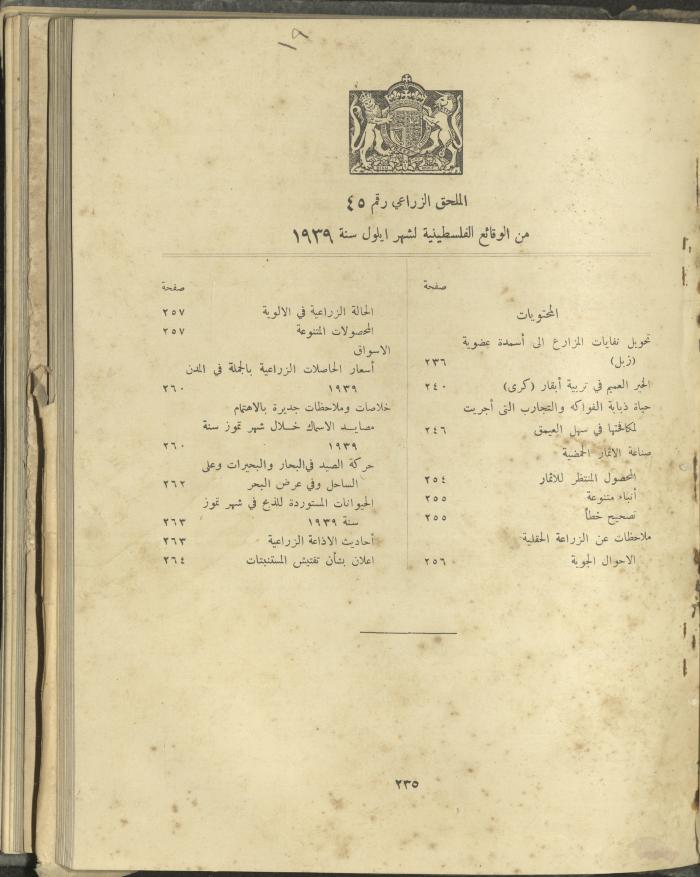 ١٩
الملحق الزراعي رقم ٤٥
من الوقائع الفلسطينية لشهر ايلول سنة ١٩٣٩
صفحة
المحتويات
تحويل نفايات المزارع الى أسمدة عضوية
(زبل) ٢٣٦
الخبر العميم في تربية أبقار (كرى) ٢٤٠
حياة ذبابة الفواكه والتجارب التى أجريت
لمكافحتها في سهل العيمق ٢٤٦
صناعة الاثمار الحمضية
المحصول المنتظر للاثمار ٢٥٤
أنباء متنوعة ٢٥٥
تصحيح خطأ ٢٥٥
ملاحظات عن الزراعة الحقلية
الاحوال الجوية ٢٥٦
صفحة
الحالة الزراعية في الالوية ٢٥٧
المحصولات المتنوعة ٢٥٧
الاسواق
أسعار الحاصلات الزراعية بالجملة في المدن
١٩٣٩ ٢٦٠
خلاصات وملاحظات جديرة بالاهتمام
مصايد الاسماك خلال شهر تموز سنة
١٩٣٩ ٢٦٠
حركة الصيد في البحار والبحيرات وعلى
الساحل وفي عرض البحر ٢٦٢
الحيوانات المستوردة للذبح في شهر تموز
سنة ١٩٣٩ ٢٦٣
أحاديث الاذاعة الزراعية ٢٦٣
اعلان بشأن تفتيش المستنبتات ٢٦٤
٢٣٥